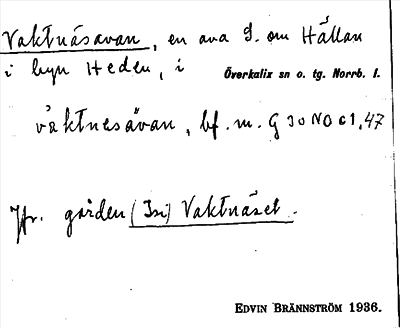 Vaktnäsavan, en ava S. om Hällan
i byn Heden, i Överkalix sn o. tg. Norrb. l.
våktnesávan, bf. m. G30NOc1,47
Jfr. gården (Isi) Vaktnäset.
EDVIN BRÄNNSTRÖM 1936.